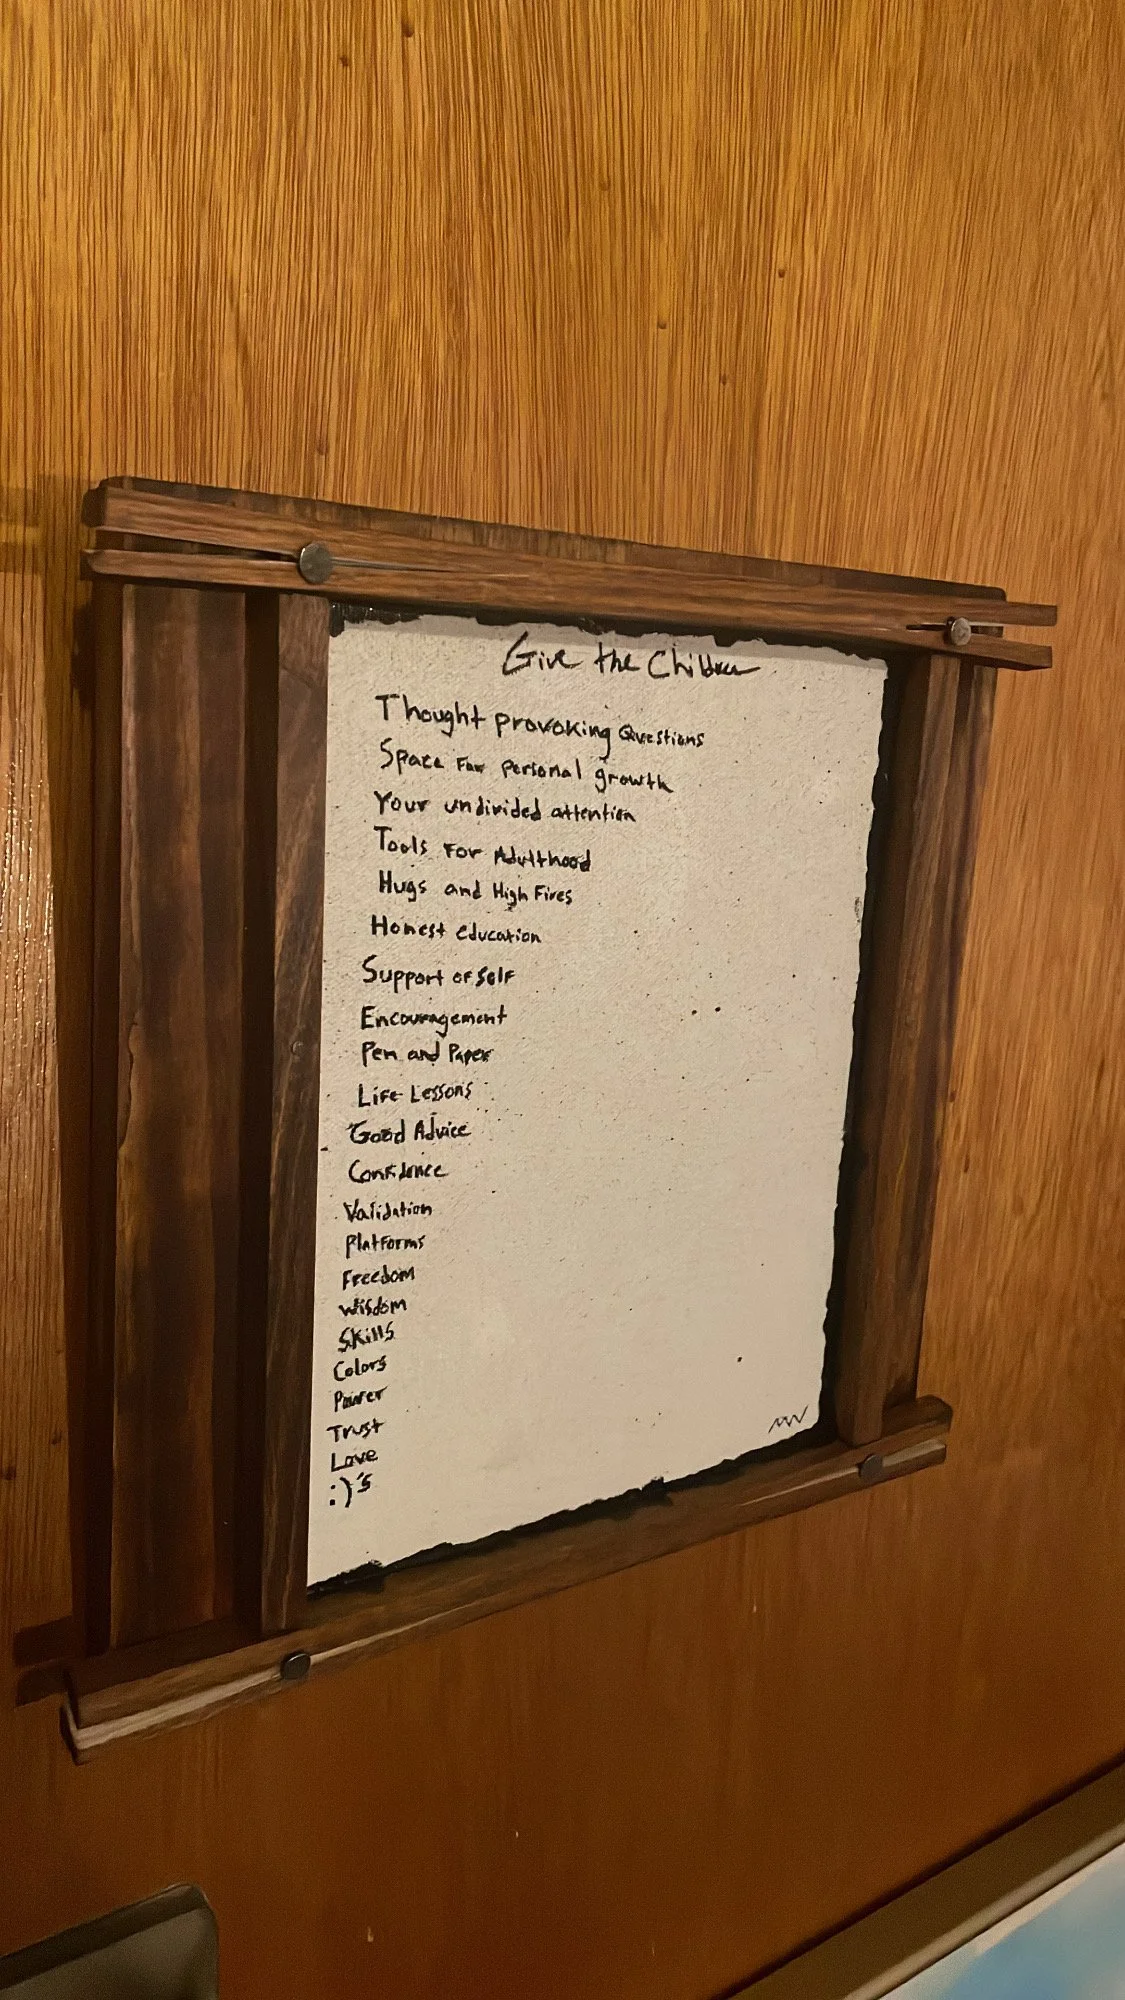 Give the Children
Thought provoking Questions
Space For personal growth
Your undivided attention
Tools For Adulthood
Hugs and High Fives
Honest education
Support of Self
Encouragement
Pen and Paper
Life Lessons
Good Advice
Confidence
Validation
Platforms
Freedom
Wisdom
Skills
Colors
Power
Trust
Love
:)'s